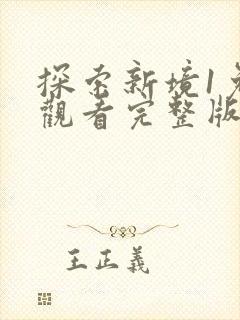 探索新境1
觀看完整版
王正義